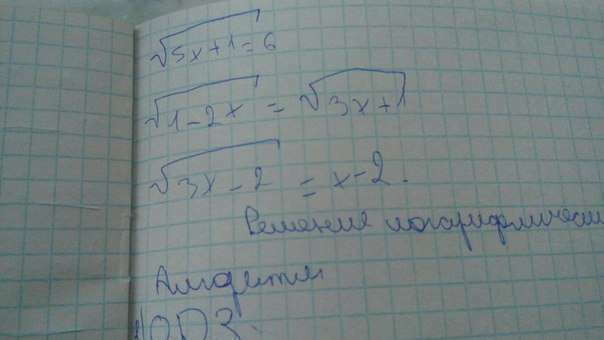 √5x+1=6
√1-2x = √3x+1
√3x-2 = x-2.
Решение логарифмически
Алгоритм
ОДЗ.